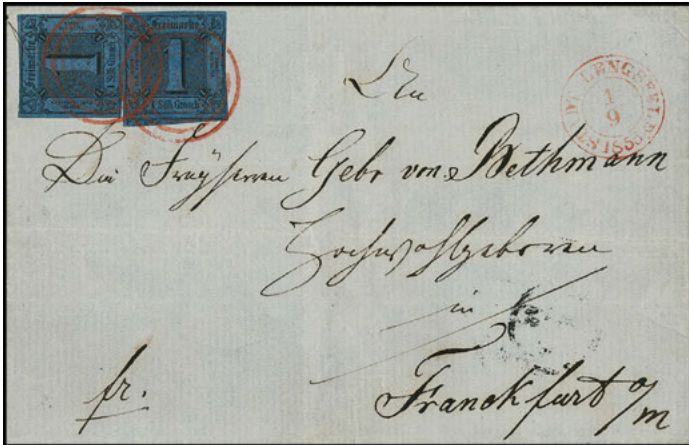 Freimarke
1
1 Silb. Grosch
Freimarke
1
1 Silb. Grosch
STADT LENGSFELD
1
9
1855
An
Die Freyherren Gebr von Bethmann
Hochwohlgeboren
in
fr.
Franckfurt a/m